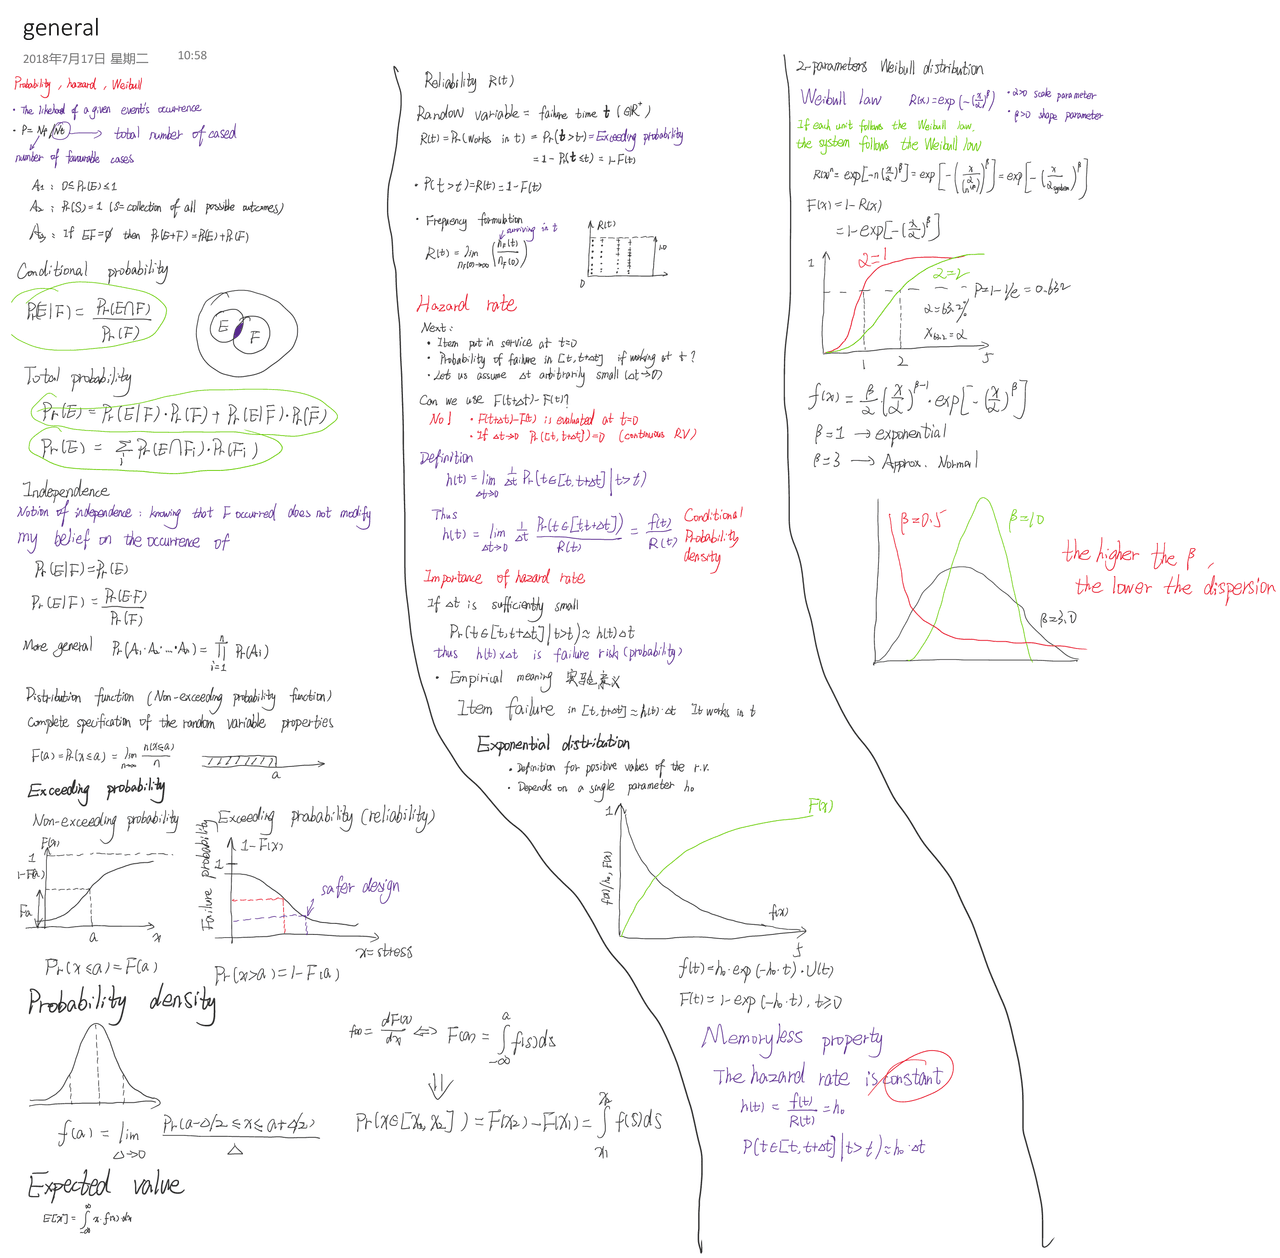 general
2018年7月17日 星期二
10:58
Probability, hazard, Weibull
· The likehood of a given event's occurrence
· P= Nf/Nt → total number of cased
number of favourable cases
A1 : 0≤Pr(E)≤1
A2 : Pr(S)=1 (S=collection of all possible outcomes)
A3 : If EF=∅ then Pr(E+F)=Pr(E)+Pr(F)
Conditional probability
Pr(E|F) = Pr(E∩F) / Pr(F)
E
F
Total probability
Pr(E) = Pr(E|F)·Pr(F) + Pr(E|F̄)·Pr(F̄)
Pr(E) = Σi Pr(E∩Fi)·Pr(Fi)
Independence
Notion of independence : knowing that F occurred does not modify
my belief on the occurrence of
Pr(E|F)=Pr(E)
Pr(E|F) = Pr(E·F) / Pr(F)
More general Pr(A1·A2·…·An) = ∏ i=1 n Pr(Ai)
Distribution function (Non-exceeding probability function)
Complete specification of the random variable properties
F(a)=Pr(x≤a) = lim n→∞ n(x≤a) / n
a
Exceeding probability
Non-exceeding probability
F(x)
1
1-F(a)
Fa
a
x
Pr(x≤a)=F(a)
Exceeding probability (reliability)
Failure probability
1-F(x)
1
safer design
x=stress
Pr(x>a)=1-F(a)
Probability density
f(a) = lim Δ→0 Pr(a-Δ/2 ≤ x ≤ a+Δ/2) / Δ
f(x) = dF(x) / dx ⇔ F(a) = ∫ -∞ a f(s)ds
⇓
Pr(x∈[x1, x2]) = F(x2) - F(x1) = ∫ x1 x2 f(s)ds
Expected value
E[x] = ∫ -∞ ∞ x·f(x)·dx
Reliability R(t)
Randow variable = failure time t (∈R⁺)
R(t) = Pr(works in t) = Pr(t>t) = Exceeding probability
= 1 - Pr(t≤t) = 1-F(t)
· P(t>t)=R(t)=1-F(t)
· Frequency formubtion
surviving in t
R(t) = lim nf(0)→∞ (nf(t) / nf(0))
R(t)
1.0
0
Hazard rate
Next:
· Item put in service at t=0
· Probability of failure in [t, t+Δt] if working at t?
· Let us assume Δt arbitrarily small (Δt→0)
Can we use F(t+Δt)-F(t)?
No! · F(t+Δt)-F(t) is evaluated at t=0
· If Δt→0 Pr([t, t+Δt])=0 (continuous RV)
Definition
h(t) = lim Δt→0 1/Δt Pr(t∈[t, t+Δt] | t>t)
Thus
h(t) = lim Δt→0 1/Δt Pr(t∈[t,t+Δt]) / R(t) = f(t) / R(t)
Conditional
Probability
density
Importance of hazard rate
If Δt is sufficiently small
Pr(t∈[t, t+Δt] | t>t) ≈ h(t)Δt
thus h(t)×Δt is failure risk (probability)
· Empirical meaning 实验意义
Item failure in [t, t+Δt] ≈ h(t)·Δt It works in t
Exponential distribution
· Definition for positive values of the r.v.
· Depends on a single parameter h₀
1
F(x)
f(x)/h₀, F(x)
f(x)
5
f(t)=h₀·exp(-h₀·t)·U(t)
F(t)=1-exp(-h₀·t), t≥0
Memoryless property
The hazard rate is constant
h(t) = f(t) / R(t) = h₀
P(t∈[t, t+Δt] | t>t) ≈ h₀·Δt
2-parameters Weibull distribution
Weibull law R(x)=exp(-(x/α)^β)
· α>0 scale parameter
· β>0 shape parameter
If each unit follows the Weibull law,
the system follows the Weibull low
R(x)ⁿ = exp[-n(x/α)^β] = exp[-(x / (α/n^(1/β)))^β] = exp[-(x/αsystem)^β]
F(x)=1-R(x)
=1-exp[-(x/α)^β]
1
α=1
α=2
P=1-1/e=0.632
α=63.2%
X63.2=α
1
2
5
f(x) = β/α (x/α)^(β-1) · exp[-(x/α)^β]
β=1 → exponential
β=3 → Approx. Normal
β=0.5
β=10
β=3.0
the higher the β,
the lower the dispersion